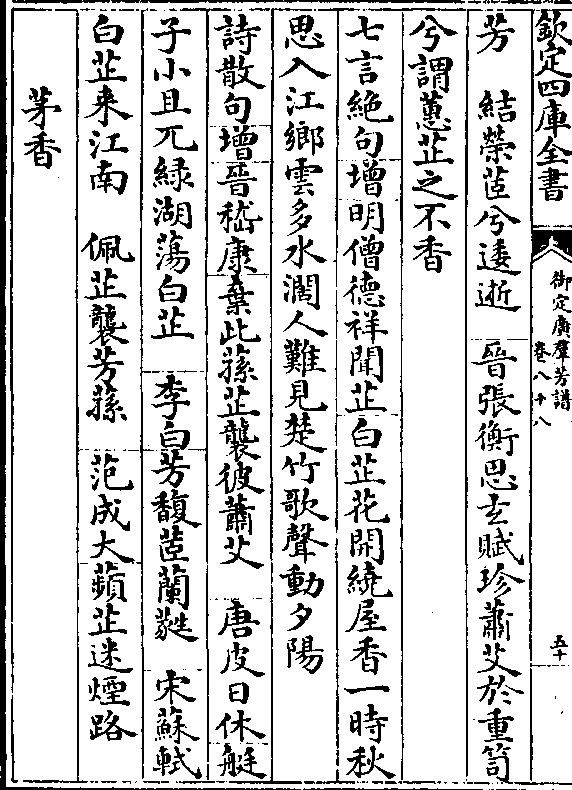 欽定四庫全書
御定廣羣芳譜
卷八十八
五十
芳　結榮茝兮逶逝　晉張衡思玄賦珍蕭艾於重笥
兮謂蕙芷之不香
七言絶句增明僧德祥聞芷白芷花開繞屋香一時秋
思入江鄉雲多水濶人難見楚竹歌聲動夕陽
詩散句增晉嵇康棄此蓀芷襲彼蕭艾　唐皮日休艇
子小且兀緑湖蕩白芷　李白芳馥茝蘭蕤　宋蘇軾
白芷来江南　佩芷襲芳蓀　范成大蘋芷迷煙路
茅香